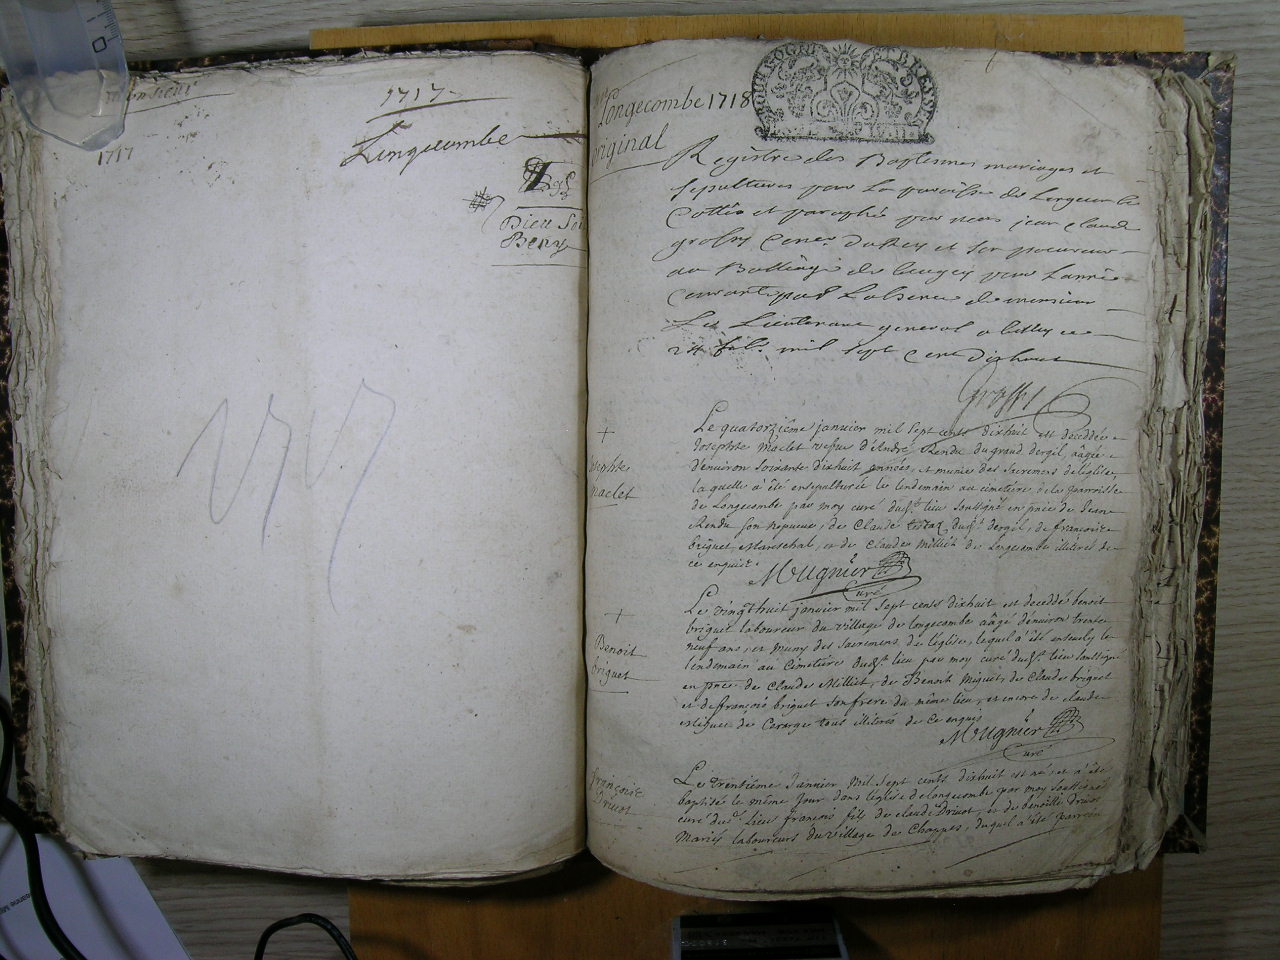 monsieur
1717
1717
Longecombe
Dieu Soi
Beny
1717
Longecombe 1718
original
BOURGOGNE ET BRESSE
Registre des Baptesmes mariages et
sepultures pour La paroisse de Longecombe
Cottée et paraphé par nous jean claude
Coner du Roy et son procureur
au Balliage de beugey pour Lannee
courante pour Labsence de monsieur
Le Lieutenant general a belley ce
24 mil sept cent dixhuit
Le quatorziême janvier mil sept cents dixhuit est decedée
Josephte maclet vefue d'André Rendu du grand dergil, aâgée
d'environ soixante dixhuit années, et munie des sacremens de l'église,
laquelle a été ensepulturée le lendemain au cimetiére de la parroisse
de Longecombe par moy curé dudt lieu soussigné en pnce de Jean
Rendu son nepueu, de Claude dudt dergil, de françois
briguet, Mareschal, et de Claude Milliet de Longecombe illiterés de
ce enquis
Josephte
maclet
Mugnier
Curé
Le vingt huit janvier mil sept cents dixhuit est decedé benoit
briguet laboureur du village de longecombe aâgé d'environ trente
neuf ans, et muny des sacremens de l'église, lequel a été enseuely le
lendemain au Cimetiére dudt lieu par moy curé dudt lieu soussigné
en pnce de Claude Milliet, de Benoit Miguet, de Claude briguet
et de françois briguet son frere du même lieu, et encore de claude
Miguet de Cerarge tous illiterés de ce enquis
Benoit
briguet
Mugnier
Curé
Le trentiême Janvier Mil sept cents dixhuit est né, et a été
baptisé le même Jour dans l'église de longecombe par moy soussigné
curé dudt lieu françois fils de claude Druot, et de benoite Druot
Mariés laboureurs du village de Chappes, duquel a été parrein
françois
Druot